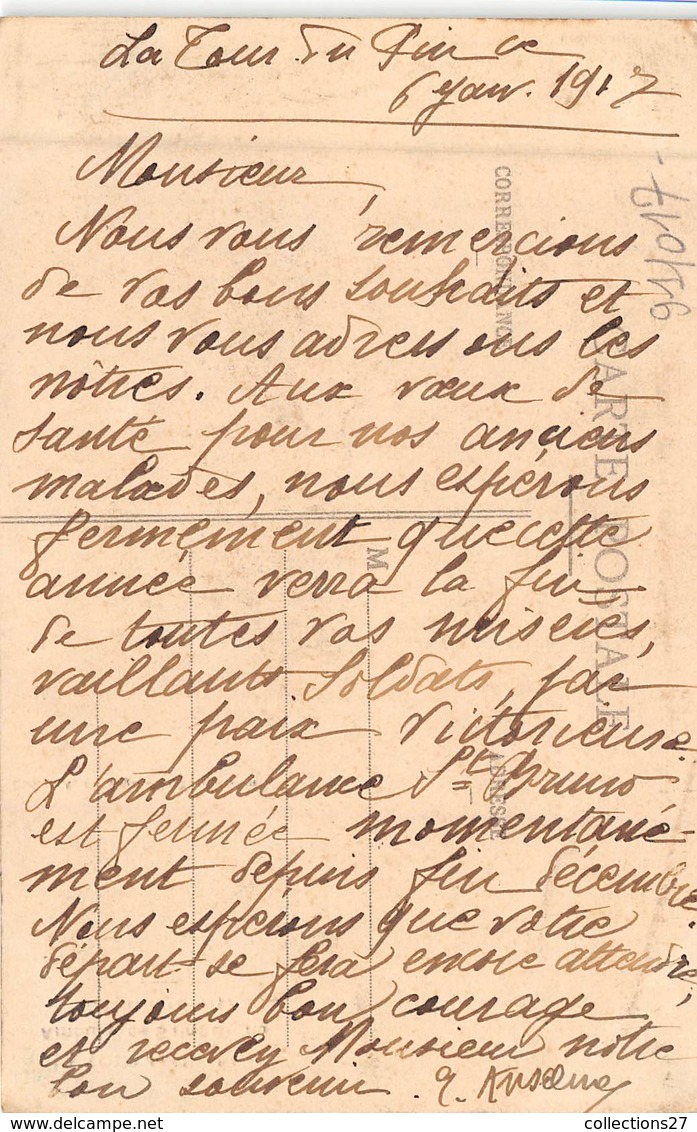 La Tour du Pin le
6 janv. 1917
Monsieur,
Nous vous remercions
de vos bons souhaits et
nous vous adressons les
nôtres. Aux vœux de
santé pour nos anciens
malades, nous espérons
fermement que cette
année verra la fin
de toutes vos misères,
vaillants soldats, par
une paix victorieuse.
L'ambulance St Bruno
est fermée momentané-
ment depuis fin décembre.
Nous espérons que votre
départ se fera encore attendre,
toujours bon courage
et recevez Monsieur notre
bon souvenir.
CORRESPONDANCE
CARTE POSTALE
M
ADRESSE
collections27